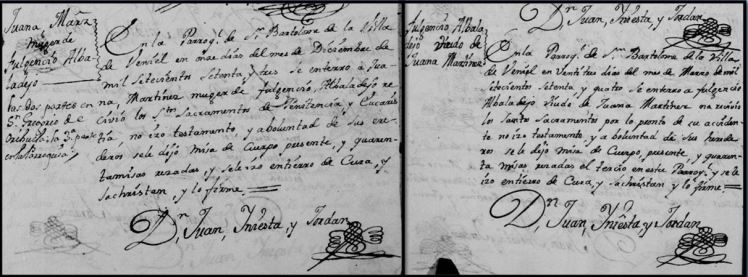 Juana Martz
muger de
Fulgencio Alba-
ladejo
las dos partes en
Sn Gregorio de
Orihuela, la 3a parte
en esta Parroquia
En la Parroql. de Sn Bartolome de la Villa
de Veniel en onze dias del mes de Disiembre de
mil Setecientos Setenta, y tres se enterró a Jua-
na, Martinez muger de fulgencio, Albaladejo re-
civio los Stos Sacramentos de Penitencia, y Eucaris-
tia, no izo testamento, y aboluntad de sus ere-
deros sele dijo misa de Cuerpo presente, y quaren-
ta misas rezadas, y sele izo entierro de Cura, y
sachristan, y lo firme
Dn Juan, Iniesta, y Jordan
Dn Juan, Iniesta, y Jordan
fulgencio Albala
dejo Viudo de
Juana Martinez
En la Parroql. de Sn Bartolome de la Villa
de Veniel en Ventitres dias del mes de Marzo de mil
setecientos Setenta, y quatro se enterro a fulgencio
Albaladejo Viudo de Juana Martinez no recivio
los Santos Sacramentos por lo pronto de su acciden-
te no izo testamento, y aboluntad de sus herede-
ros sele dijo misa de Cuerpo, presente, y quaren-
ta misas rezadas el tercio en esta Parroql. y sele
izo entierro de Cura, y sachristan y lo firme
Dn Juan, Iniesta y Jordan